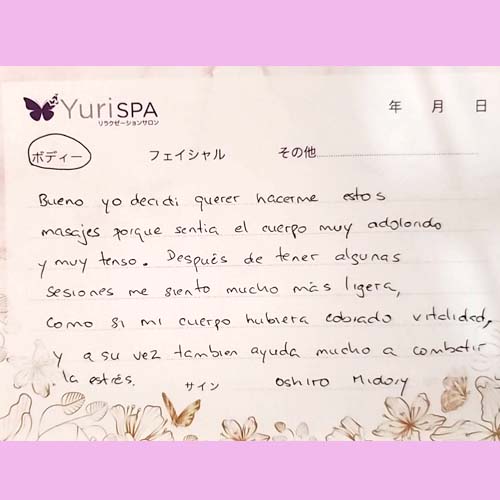 YuriSPA
リラクゼーションサロン
年 月 日
ボディー フェイシャル その他
Bueno yo decidi querer hacerme estos
masajes porque sentia el cuerpo muy adolorido
y muy tenso. Después de tener algunas
sesiones me siento mucho más ligera,
como si mi cuerpo hubiera cobrado vitalidad,
y a su vez tambien ayuda mucho a combatir
la estrés. サイン Oshiro Midory